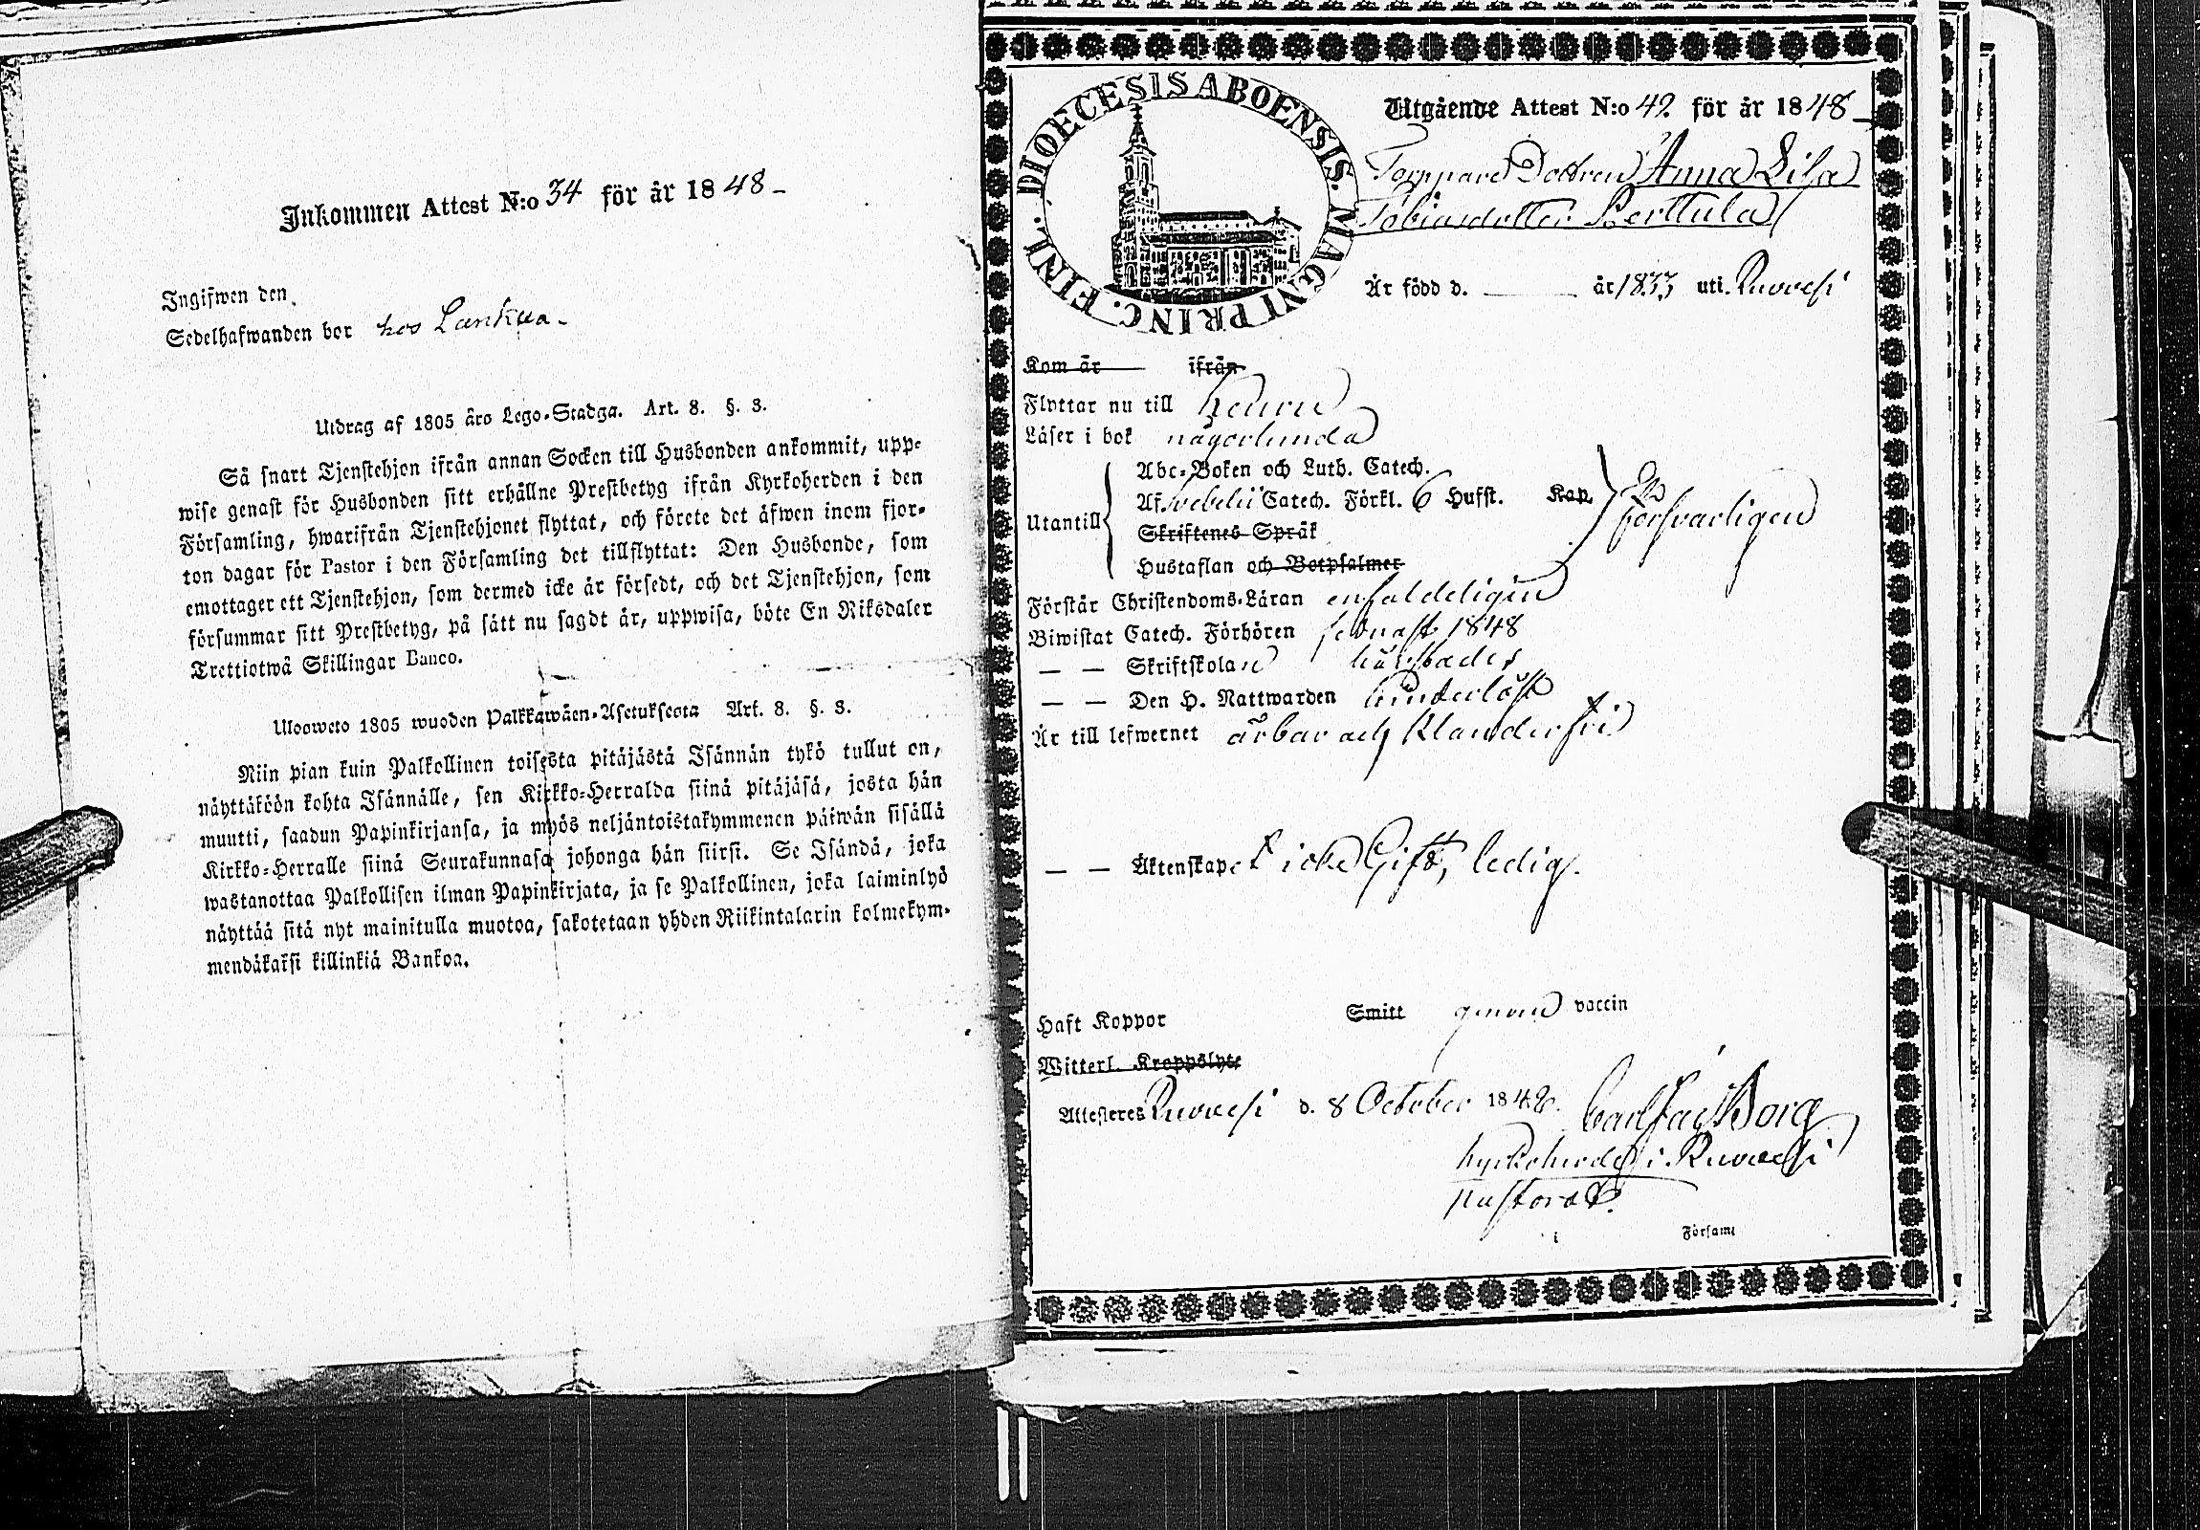 Inkommen Attest N:o 34 för år 1848
Ingifwen den
Sedelhafwanden bor hos Lankua
Utdrag af 1805 års Lego-Stadga. Art. 8. §. 3.
Så snart Tjenstehjon ifrån annan Socken till Husbonden ankommit, upp-
wise genast för Husbonden sitt erhållne Prestbetyg ifrån Kyrkoherden i den
Församling, hwarifrån Tjenstehjonet flyttat, och förete det äfwen inom fjor-
ton dagar för Pastor i den Församling det tillflyttat: Den Husbonde, som
emottager ett Tjenstehjon, som dermed icke är försedt, och det Tjenstehjon, som
försummar sitt Prestbetyg, på sätt nu sagdt är, uppwisa, böte En Riksdaler
Trettiotwå Skillingar Banco.
Ulosweto 1805 wuoden Palkkawäen-Asetuksesta Art. 8. §. 3.
Niin pian kuin Palkollinen toisesta pitäjästä Isännän tykö tullut on,
näyttäköön kohta Isännälle, sen Kirkko-Herralda siinä pitäjäsä, josta hän
muutti, saadun Papinkirjansa, ja myös neljäntoistakymmenen päiwän sisällä
Kirkko-Herralle siinä Seurakunnasa johonga hän siirsi. Se Isändä, joka
wastanottaa Palkollisen ilman Papinkirjata, ja se Palkollinen, joka laiminlyö
näyttää sitä nyt mainitulla muotoa, sakotetaan yhden Riikintalarin kolmekym-
mendäkaksi killinkiä Bankoa.
DIOECESIS ABOENSIS. MAGNI PRINC. FINL.
Utgående Attest N:o 42 för år 1848
Torppare Dottren Anna Lisa
Tobiasdotter Perttula
Är född d. år 1833 uti Ruovesi
Kom år ifrån
Flyttar nu till Keuru
Läser i bok någorlunda
Abc-Boken och Luth. Catech.
Af Svebelii Catech. Förkl. 6 Hufst. Kap.
Utantill
Skriftenes Språk
Hustaflan och Botpsalmer
försvarligen
Förstår Christendoms-Läran enfaldeligen
Biwistat Catech. Förhören sednast 1848
— — Skriftskolan härstädes
— — Den H. Nattwarden
Är till lefwernet ärbar och klanderfri
— — Äktenskapet icke Gift, ledig.
Haft Koppor Smitt genom vaccin
Witterl. Kroppslyte
Attesteres Ruovesi d. 8 October 1848.
Carl Borg
Kyrkoherde i Ruovesi
pastorat.
i Församl